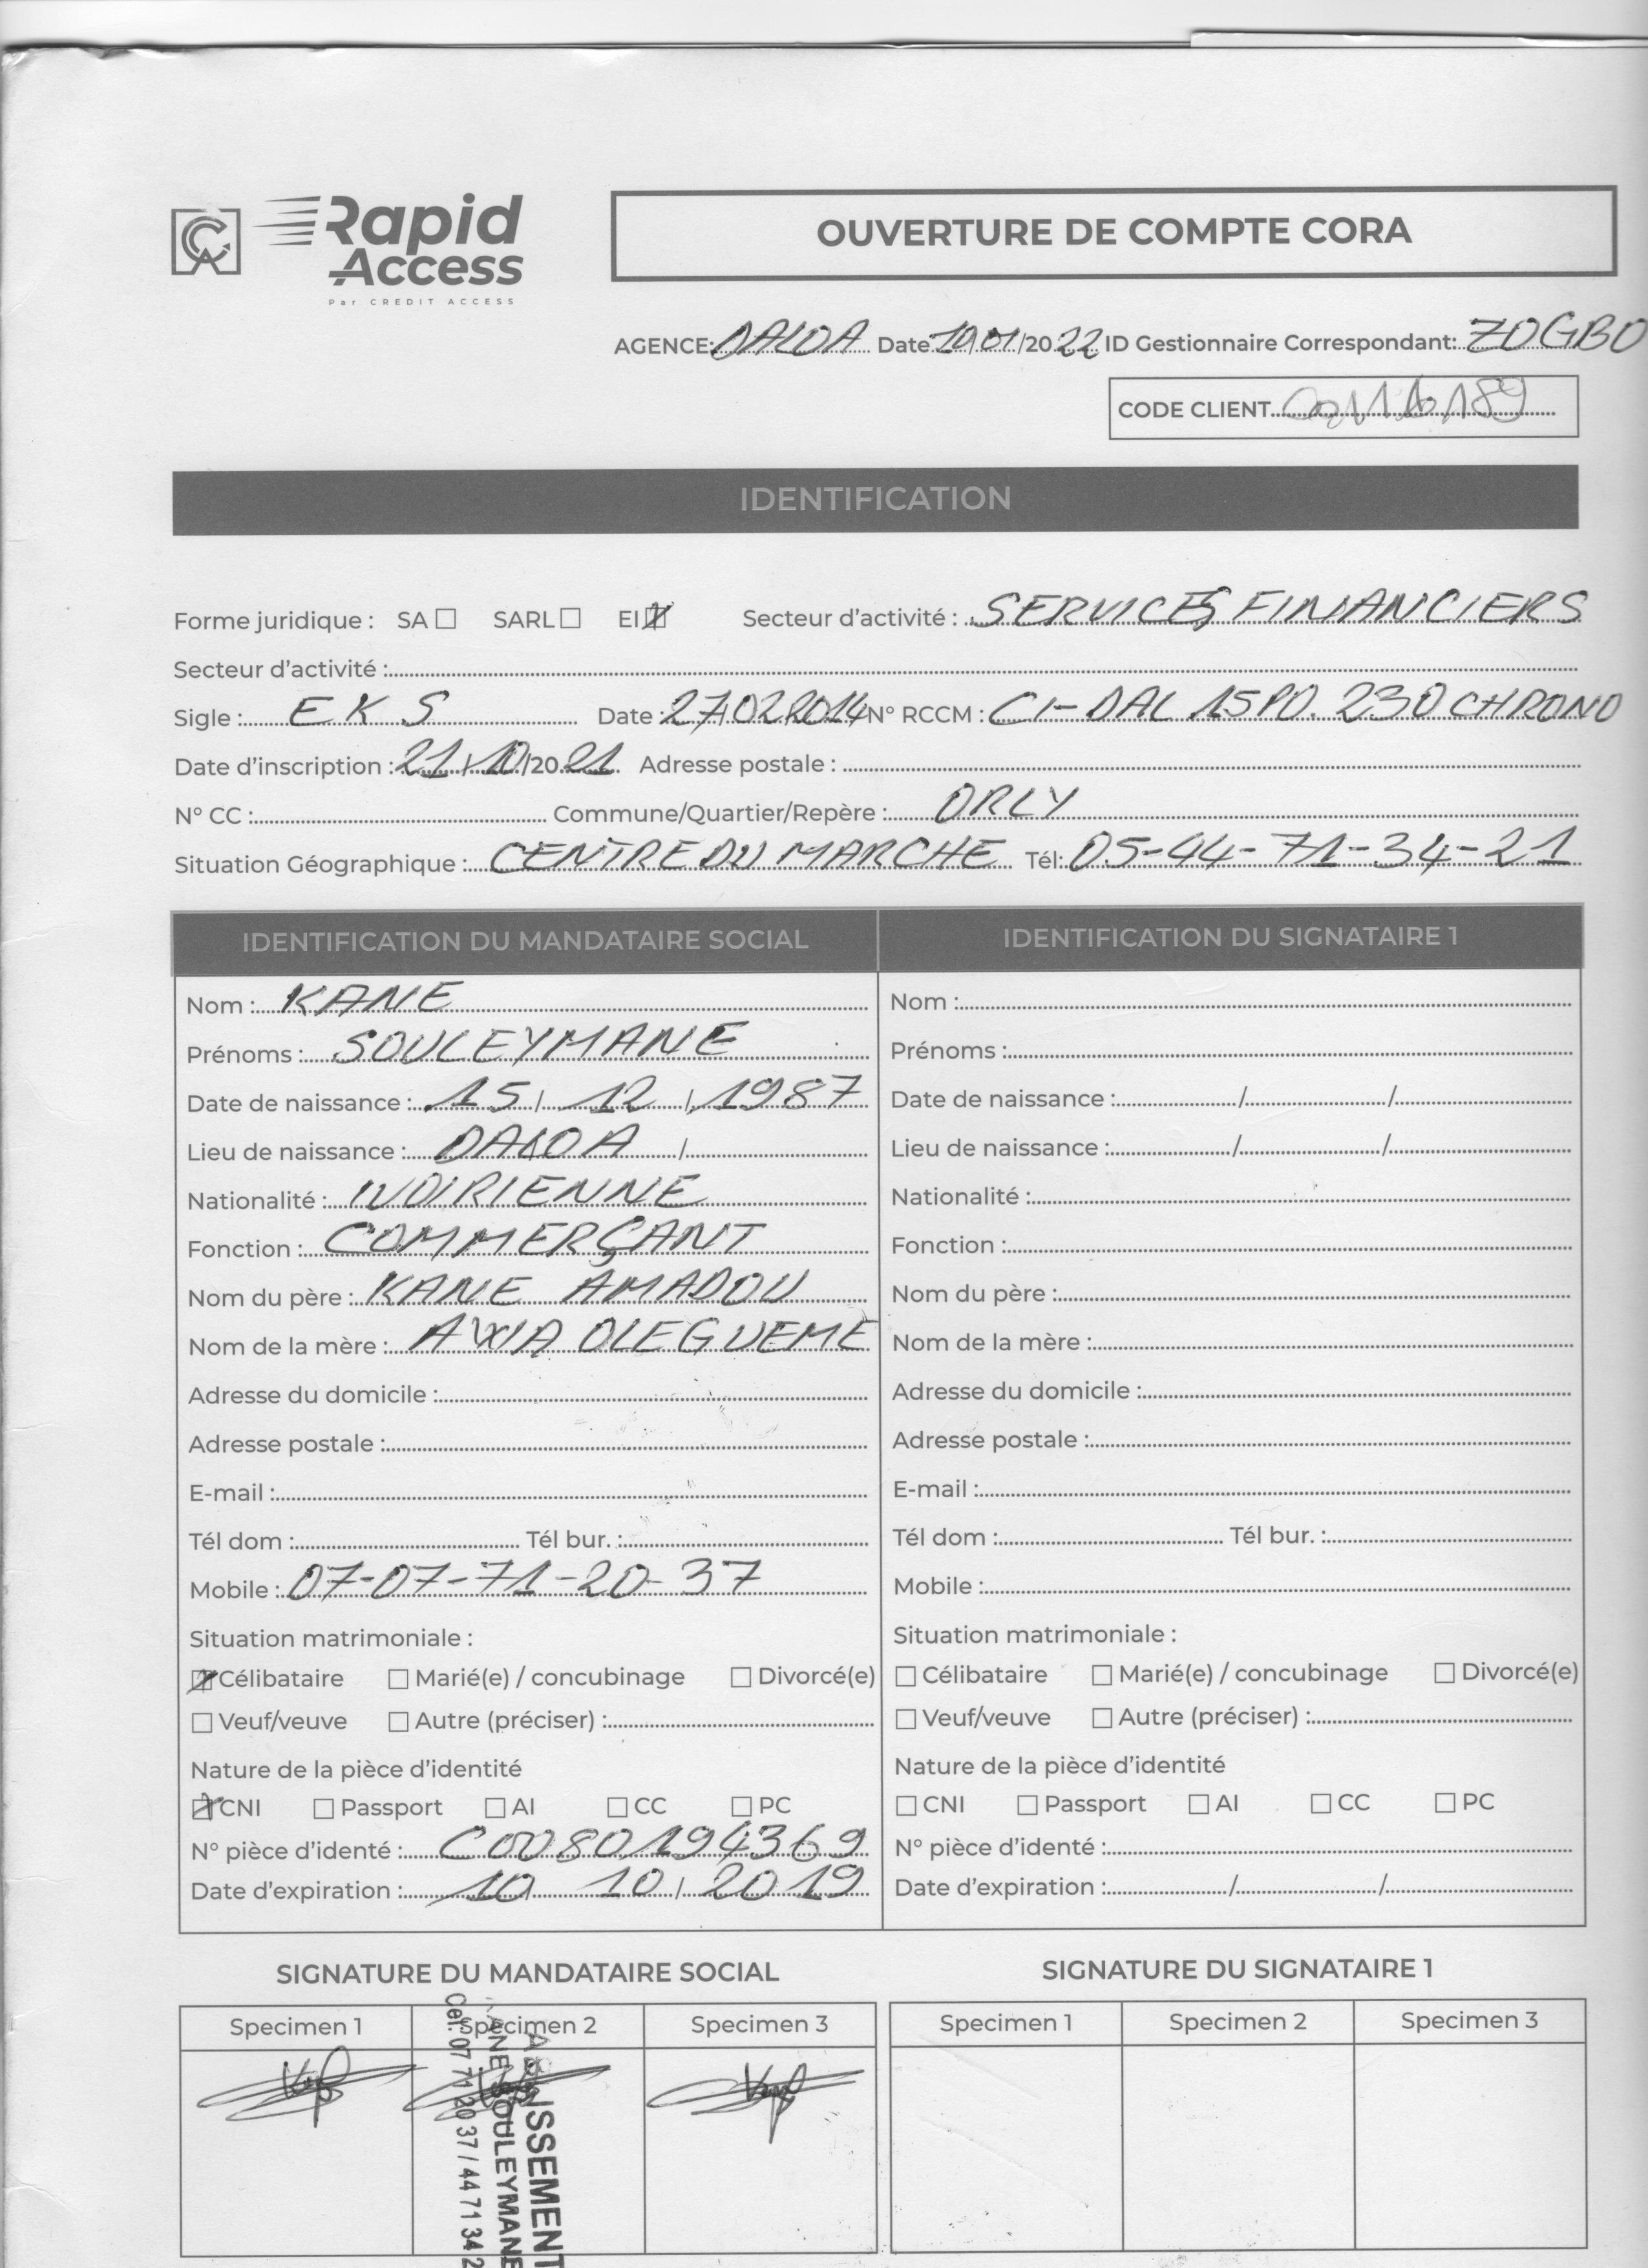 Rapid
Access
Par CREDIT ACCESS
OUVERTURE DE COMPTE CORA
AGENCE: DALOA Date 19/01/2022 ID Gestionnaire Correspondant: ZOGBO
CODE CLIENT
IDENTIFICATION
Forme juridique : SA ☐ SARL ☐ EI ☒ Secteur d'activité : SERVICES FINANCIERS
Secteur d'activité :
Sigle : EKS Date : 27/02/2014 N° RCCM : CI-DAL 15PO. 230 CHRONO
Date d'inscription : 21/10/2021 Adresse postale :
N° CC : Commune/Quartier/Repère : ORLY
Situation Géographique : CENTRE DU MARCHE Tél: 05-44-71-34-21
IDENTIFICATION DU MANDATAIRE SOCIAL
Nom : KANE
Prénoms : SOULEYMANE
Date de naissance : 15/12/1987
Lieu de naissance : DALOA /
Nationalité : IVOIRIENNE
Fonction : COMMERÇANT
Nom du père : KANE AMADOU
Nom de la mère : AWA OLEGUEME
Adresse du domicile :
Adresse postale :
E-mail :
Tél dom : Tél bur. :
Mobile : 07-07-71-20-37
Situation matrimoniale :
☒ Célibataire ☐ Marié(e) / concubinage ☐ Divorcé(e)
☐ Veuf/veuve ☐ Autre (préciser) :
Nature de la pièce d'identité
☒ CNI ☐ Passport ☐ AI ☐ CC ☐ PC
N° pièce d'identé : C00801194369
Date d'expiration : 10/10/2019
IDENTIFICATION DU SIGNATAIRE 1
Nom :
Prénoms :
Date de naissance : / /
Lieu de naissance : / /
Nationalité :
Fonction :
Nom du père :
Nom de la mère :
Adresse du domicile :
Adresse postale :
E-mail :
Tél dom : Tél bur. :
Mobile :
Situation matrimoniale :
☐ Célibataire ☐ Marié(e) / concubinage ☐ Divorcé(e)
☐ Veuf/veuve ☐ Autre (préciser) :
Nature de la pièce d'identité
☐ CNI ☐ Passport ☐ AI ☐ CC ☐ PC
N° pièce d'identé :
Date d'expiration : / /
SIGNATURE DU MANDATAIRE SOCIAL
Specimen 1 Specimen 2 Specimen 3
SIGNATURE DU SIGNATAIRE 1
Specimen 1 Specimen 2 Specimen 3
ISSEMENT
ANE SOULEYMANE
Cel: 07 71 20 37 / 44 71 34 2